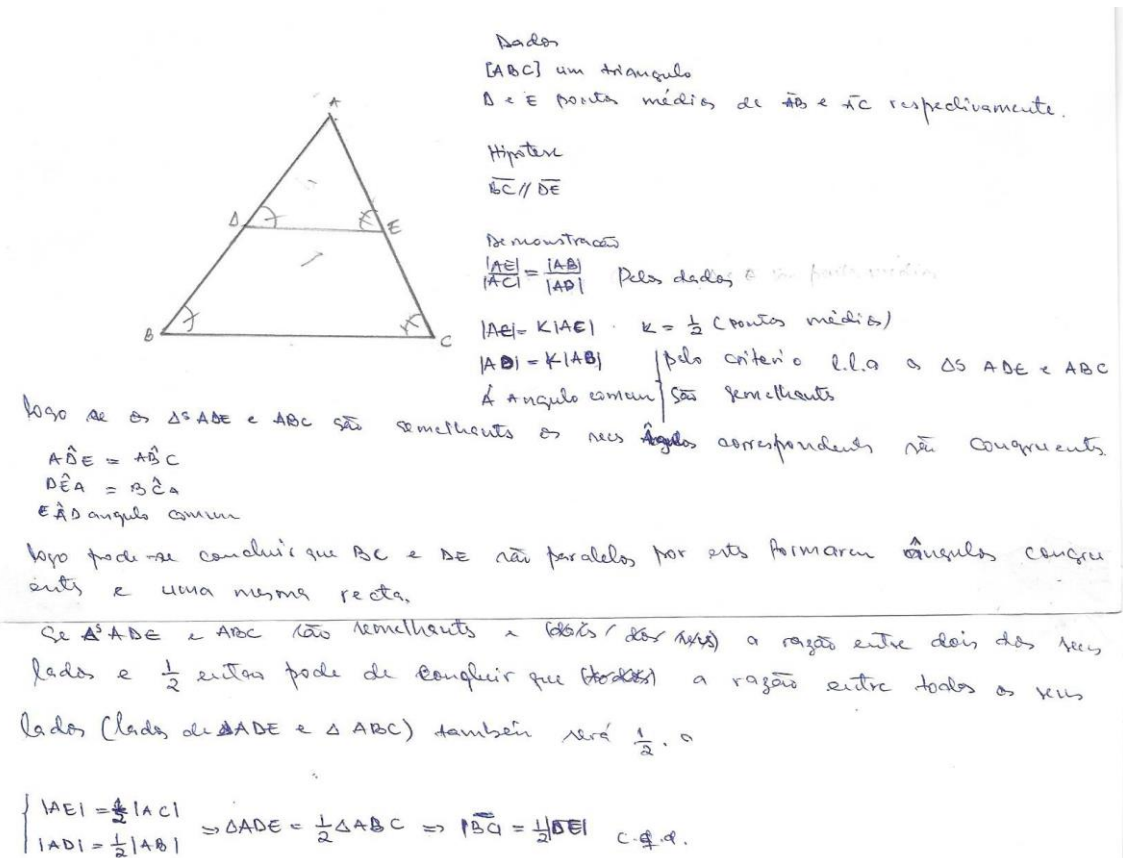 Dados
[ABC] um triangulo
D e E pontos médios de AB e AC respectivamente.
Hipotese
BC // DE
Demonstracão
|AE|/|AC| = |AB|/|AD| Pelos dados
|AE| = K|AE| . K = 1/2 (pontos médios)
|AD| = K|AB| pelo criterio l.l.a os Δs ADE e ABC
Â Angulo comum são semelhants
A
D
E
B
C
logo se os Δs ADE e ABC são semelhants os seus Ângulos correspondents são congruents.
AD̂E = AB̂C
DÊA = BĈA
EÂD angulo comum
logo pode-se concluir que BC e DE são paralelos por ests formarem ângulos congru
ents e uma mesma recta.
Se Δs ADE e ABC são semelhants e (dois / dos seus) a razão entre dois dos seus
lados e 1/2 entao pode de concluir que (todos) a razão entre todos os seus
lados (lados de ΔADE e Δ ABC) também será 1/2. o
|AE| = 1/2 |AC|
|AD| = 1/2 |AB| ⇒ ΔADE = 1/2 ΔABC ⇒ |BC| = 1/2 |DE| c.q.d.